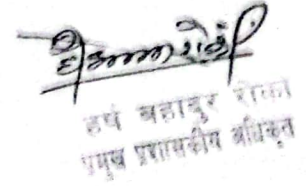 हर्ष बहादुर रोका
प्रमुख प्रशासकीय अधिकृत